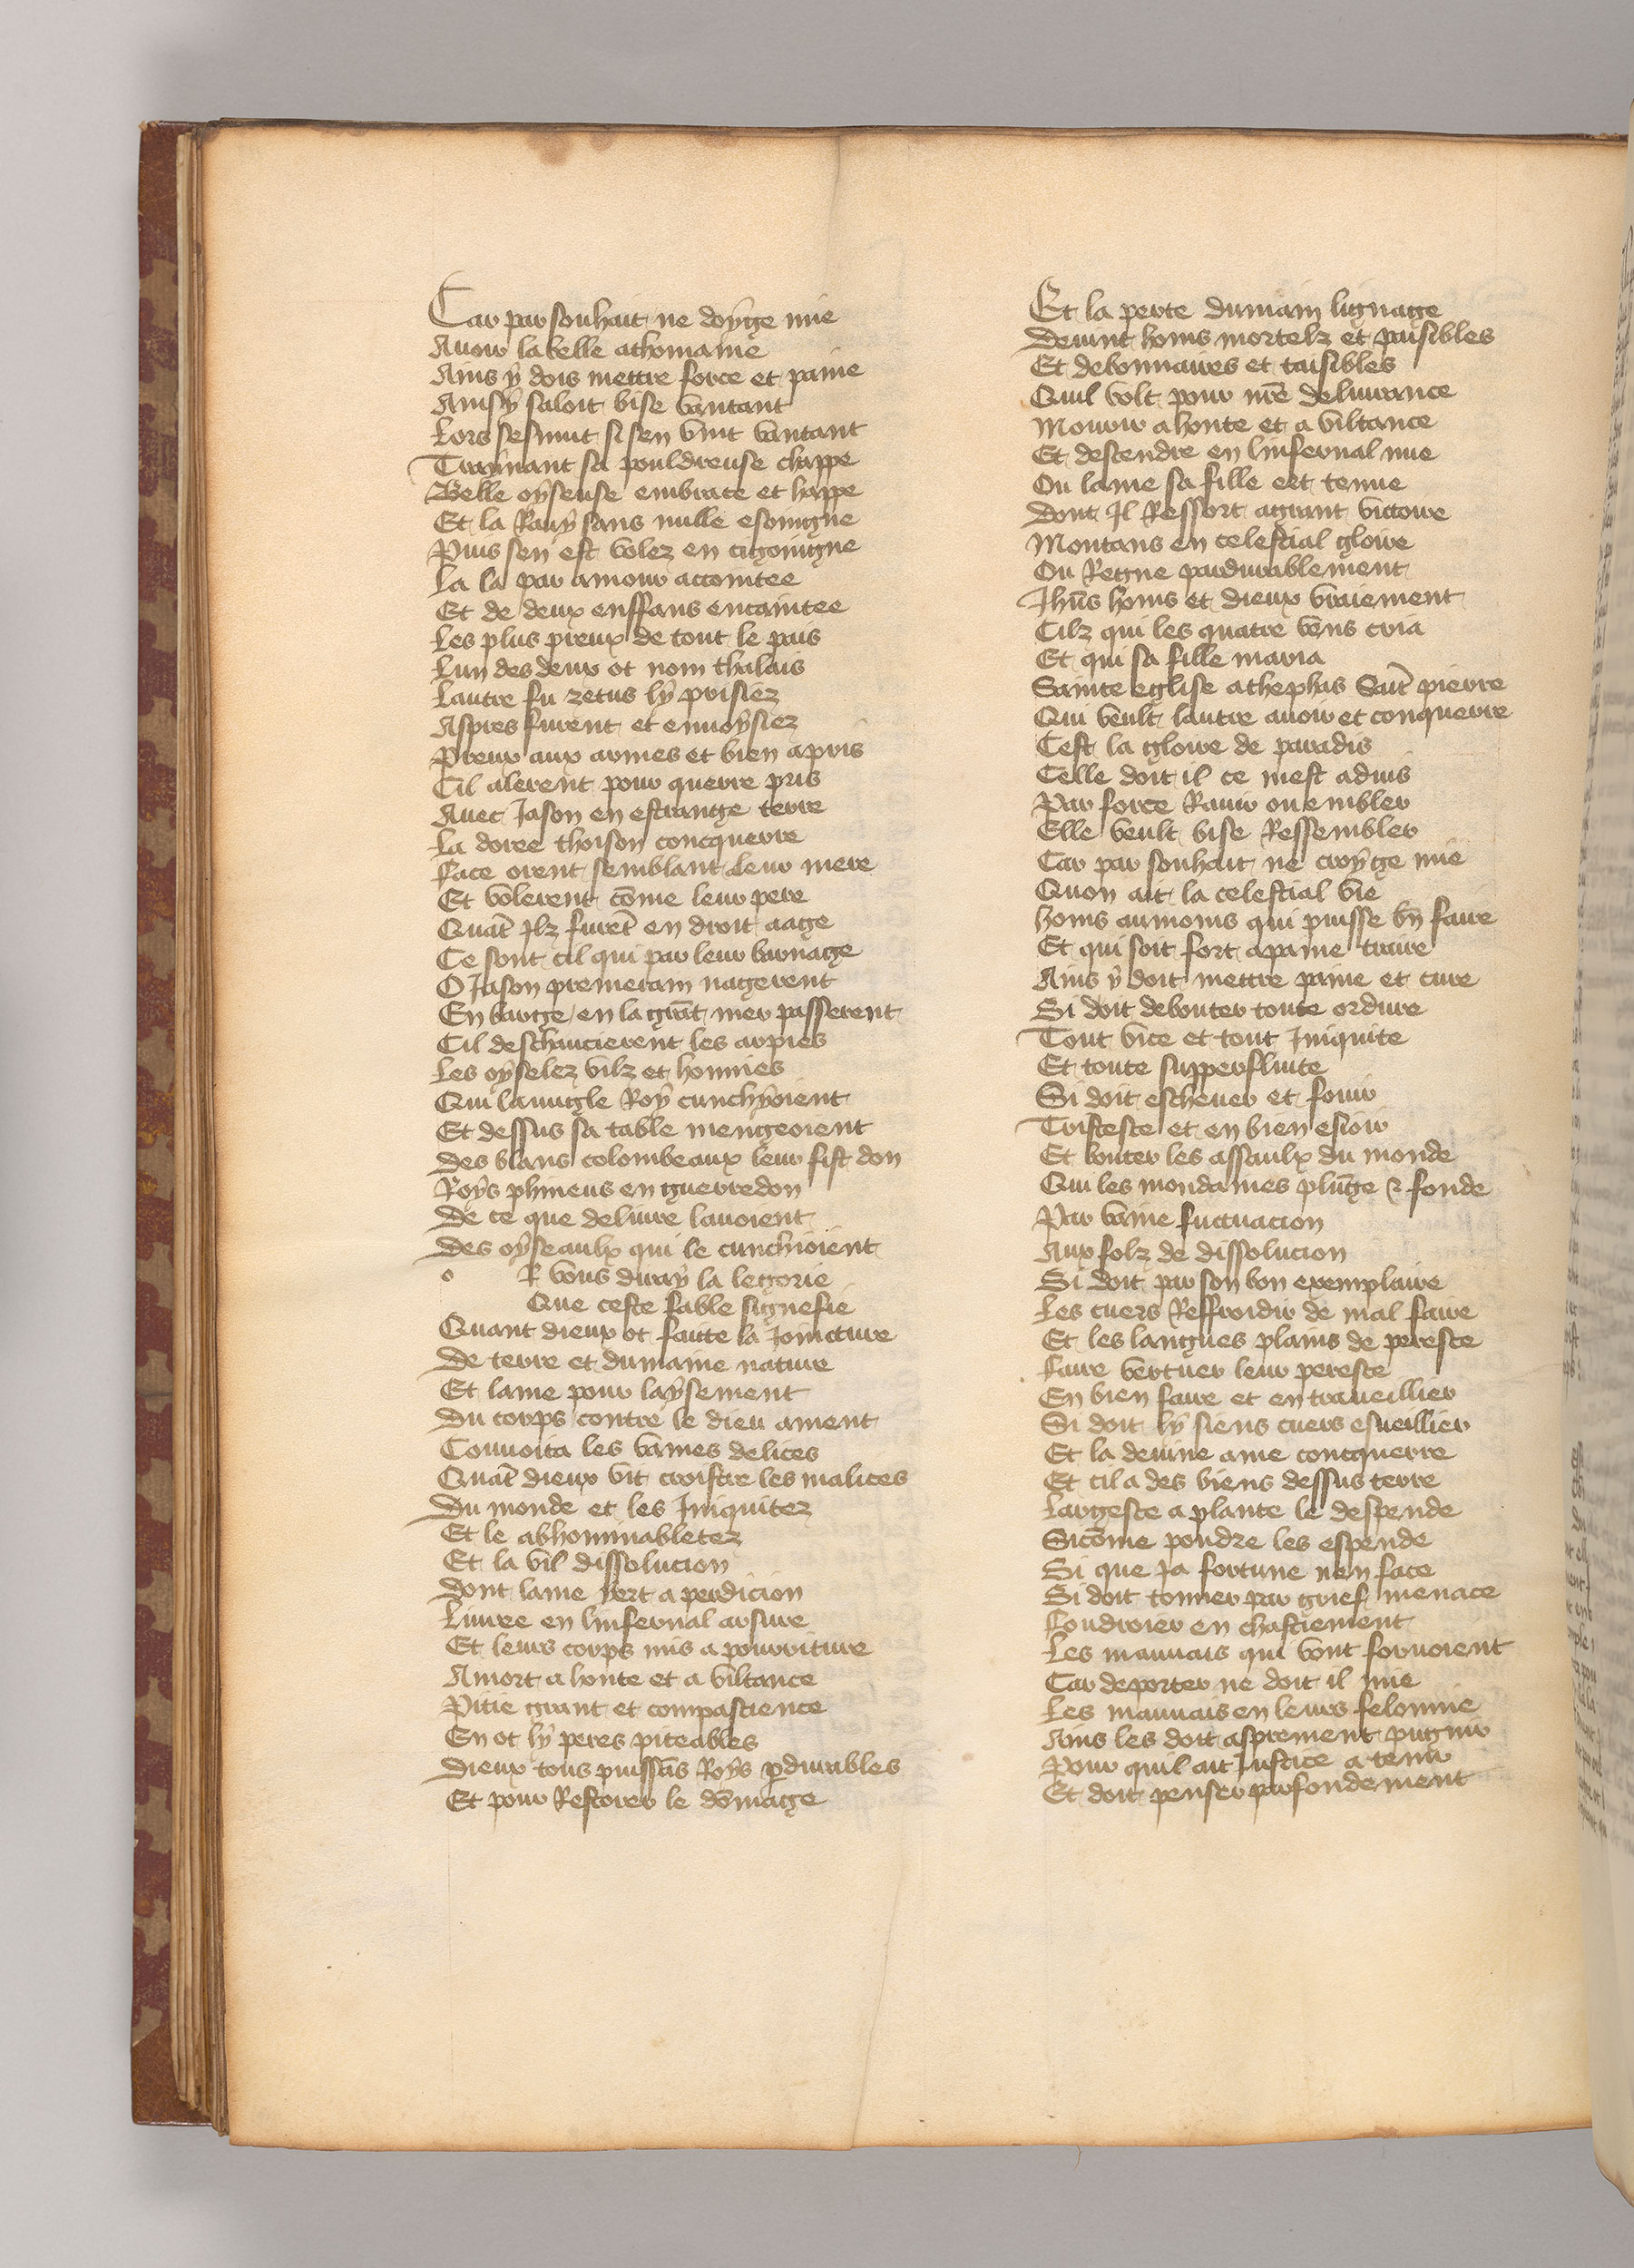 Car par souhait ne doyge mie
Auoir la belle athomaine
Ains y dois mettre force et paine
Ainsy saloit bise vantant
Lors sesmut si sen vint vantant
Traynant sa pouldreuse chappe
Belle oyseuse embrace et happe
Et la Rauy sans nulle esoingne
Puis sen est volez en cigoingne
La la par amour accointee
Et de deux enffans encaintee
Les plus preux de tout le pais
Lun des deux ot nom thalais
Lautre fu zetus ly prisiez
Aspres furent et enuoysiez
Preux aux armes et bien apris
Cil alerent pour querre pris
Auec Jason en estrange terre
La doree thoison concquerre
Face orent semblant leur mere
Et volerent cõme leur pere
Quãt Jlz furẽt en droit aage
Ce sont cil qui par leur barnage
O Jason premerain nagerent
En barge en la grãt mer passerent
Cil deschacierent les arpies
Les oyselez vilz et honnies
Qui lauugle Roy cunchyoient
Et dessus sa table mengeoient
Des blans colombeaux leur fist don
Roys phineus en guerredon
De ce que deliure lauoient
Des oyseaulx qui le cunchioient
o R vous diray la legorie
Que ceste fable signefie
Quant dieux ot faitte la Joincture
De terre et dumaine nature
Et lame pour laysement
Du corps contre le dieu ament
Couuoita les vaines delices
Quãt dieux vit croistre les malices
Du monde et les Jniquitez
Et le abhominabletez
Et la vil dissolucion
Dont lame yert a perdicion
Liuree en linfernal arsure
Et leurs corps mis a pourriture
A mort a honte et a viltance
Pitie grant et compascience
En ot ly peres piteables
Dieux tous puissãs Roys pdurables
Et pour Restorer le dõmage
Et la perte dumain lignage
Deuint homs mortelz et paisibles
Et debonnaires et taisibles
Quil volt pour nr̃e deliurance
Mourir a honte et a viltance
Et descendre en linfernal mue
Ou lame sa fille ert tenue
Dont Jl Ressort a grant victoire
Montans en celestial gloire
Ou Regne pardurablement
Jhũs homs et dieux vraiement
Cilz qui les quatre vens cria
Et qui sa fille maria
Sainte eglise a thephas Saĩt pierre
Qui veult lautre auoir et conquerre
Cest la gloire de paradis
Celle doit il ce mest aduis
Par force Rauir ou embler
Elle veult bise Ressembler
Car par souhait ne croyge mie
Quon ait la celestial vie
Homs au moins qui puisse bn̄ faire
Et qui soit fort a paine traire
Ains y doit mettre paine et cure
Si doit debouter toute ordure
Tout vice et tout Jniquite
Et toute supperfluite
Si doit escheuer et fouir
Tristeste et en bien esioir
Et bouter les assaulx du monde
Qui les mondaines plũge & fonde
Par vaine fuctuacion
Aux folz de dissolucion
Si doit par son bon exemplaire
Les cuers Reffroidir de mal faire
Et les langues plains de pereste
Faire vertuer leur pereste
En bien faire et en traueillier
Si doit ly siens cuers esueillier
Et la deuine ame concquerre
Et cil a des biens dessus terre
Largeste a plante le despende
Sicõme poudre les espende
Si que Ja fortune nen face
Si doit tonner par grief menace
Foudroier en chastiement
Les mauuais qui vont foruoient
Car deporter ne doit il mie
Les mauuais en leurs felonnie
Ains les doit asprement pugnir
Pour quil ait Justice a tenir
Et doit penser parfondement